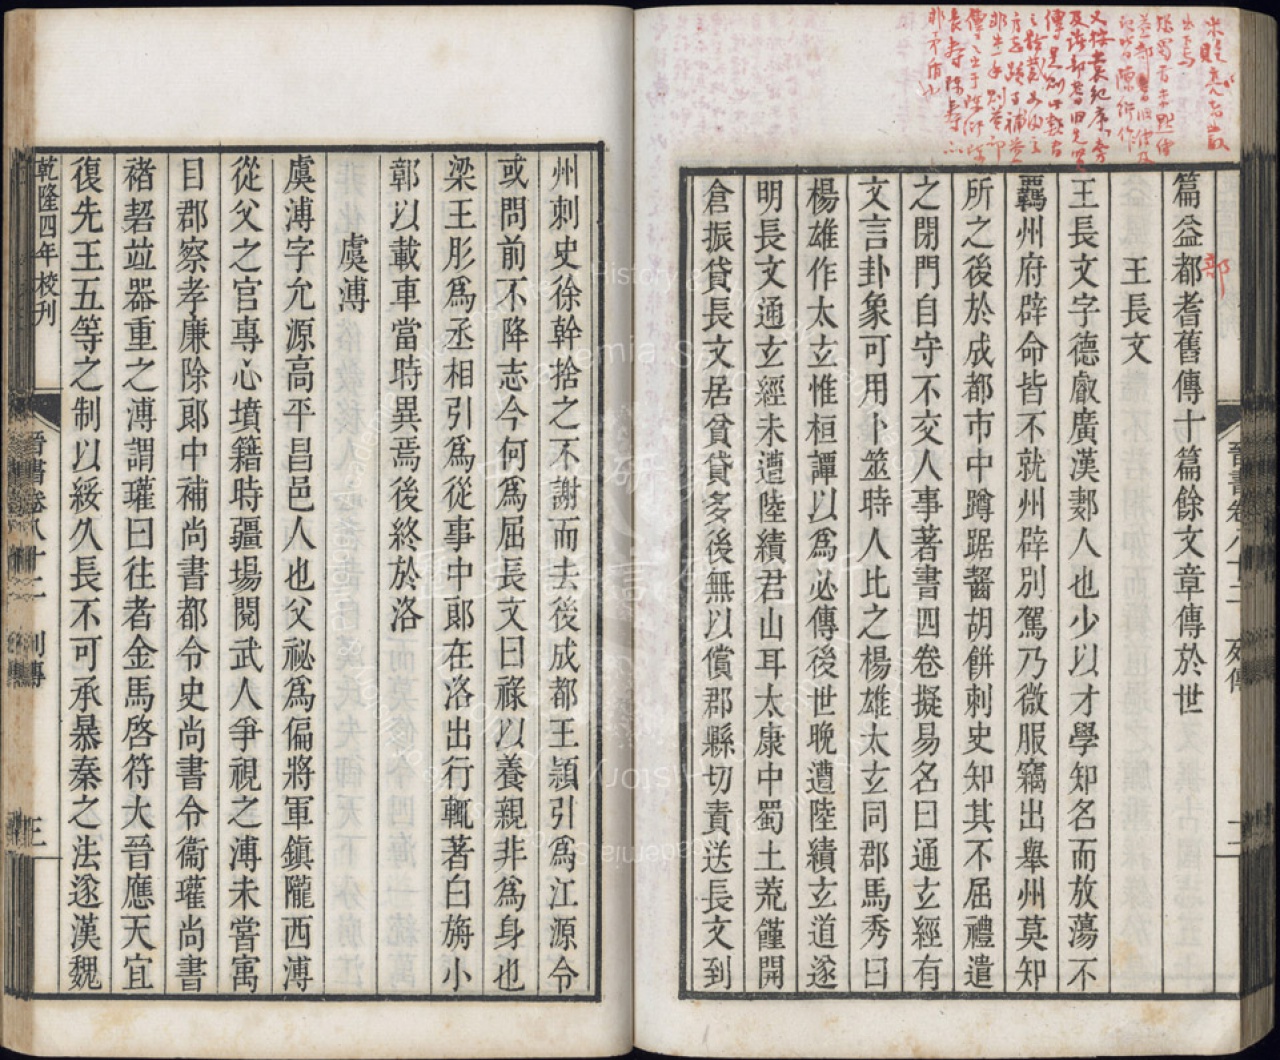 篇益都耆舊傳十篇餘文章傳於世
部
王長文
王長文字德叡廣漢郪人也少以才學知名而放蕩不
羈州府辟命皆不就州辟別駕乃微服竊出舉州莫知
所之後於成都市中蹲踞齧胡餅刺史知其不屈禮遣
之閉門自守不交人事著書四卷擬易名曰通玄經有
文言卦象可用卜筮時人比之楊雄太玄同郡馬秀曰
楊雄作太玄惟桓譚以為必傳後世晚遭陸績玄道遂
明長文通玄經未遭陸績君山耳太康中蜀土荒饉開
倉振貸長文居貧貸多後無以償郡縣切責送長文到
晉書卷八十二 列傳 二
州刺史徐幹捨之不謝而去後成都王穎引為江源令
或問前不降志今何為屈長文曰祿以養親非為身也
梁王肜為丞相引為從事中郎在洛出行輒著白旃小
鄣以載車當時異焉後終於洛
虞溥
虞溥字允源高平昌邑人也父祕為偏將軍鎮隴西溥
從父之官專心墳籍時疆場閱武人爭視之溥未嘗寓
目郡察孝廉除郎中補尚書都令史尚書令衞瓘尚書
褚䂮竝器重之溥謂瓘曰往者金馬啓符大晉應天宜
復先王五等之制以綏久長不可承暴秦之法遂漢魏
乾隆四年校刊
晉書卷八十二 列傳